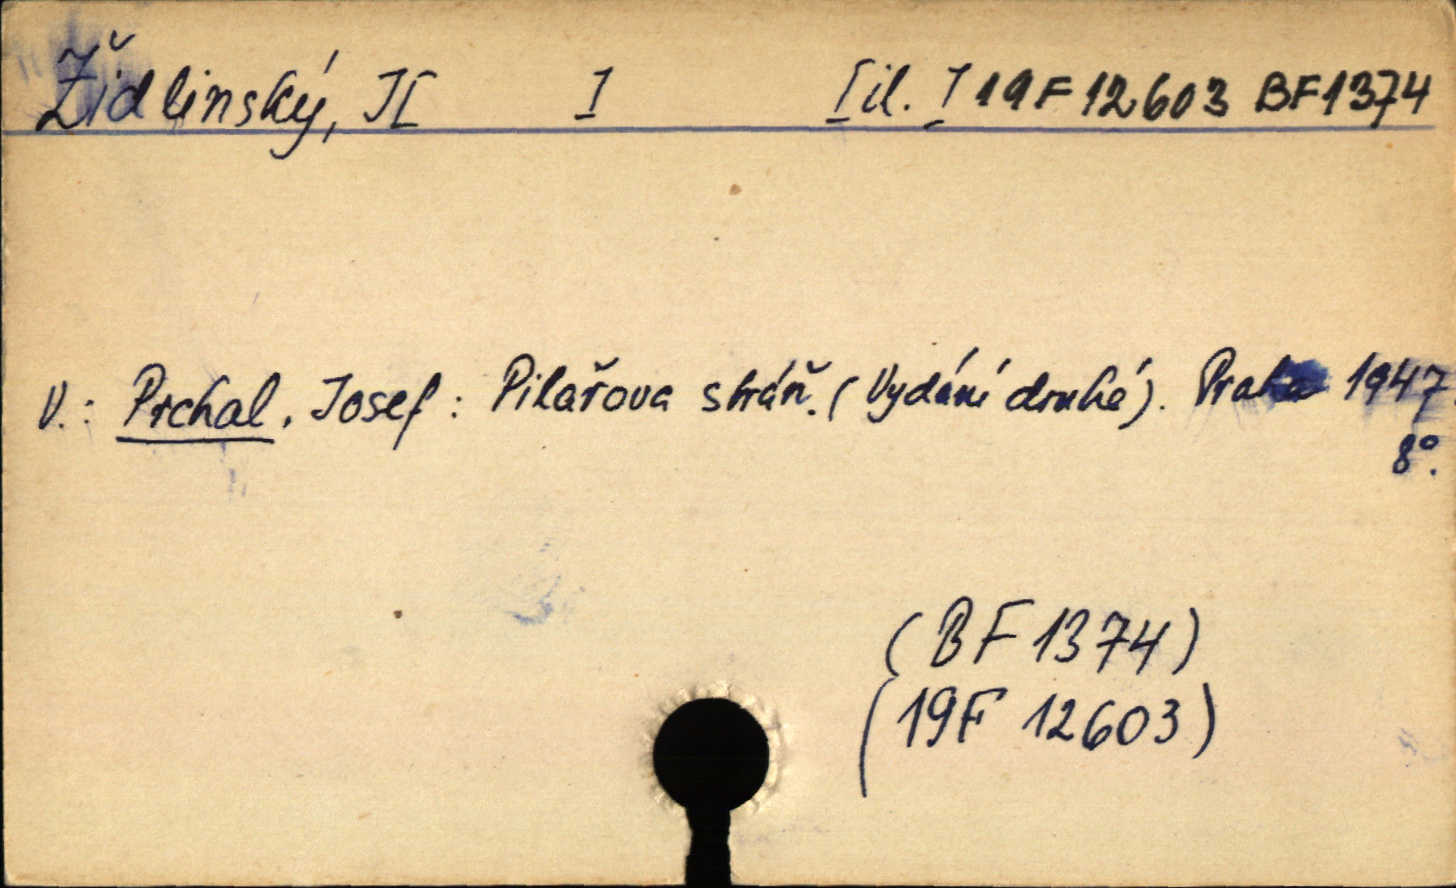 Židlinský, JI I [il.] 19F12603 BF1374
V.: Prchal, Josef: Pilařova stráň. (Vydání druhé). Praha 1947.
8°.
(BF 1374)
(19F 12603)